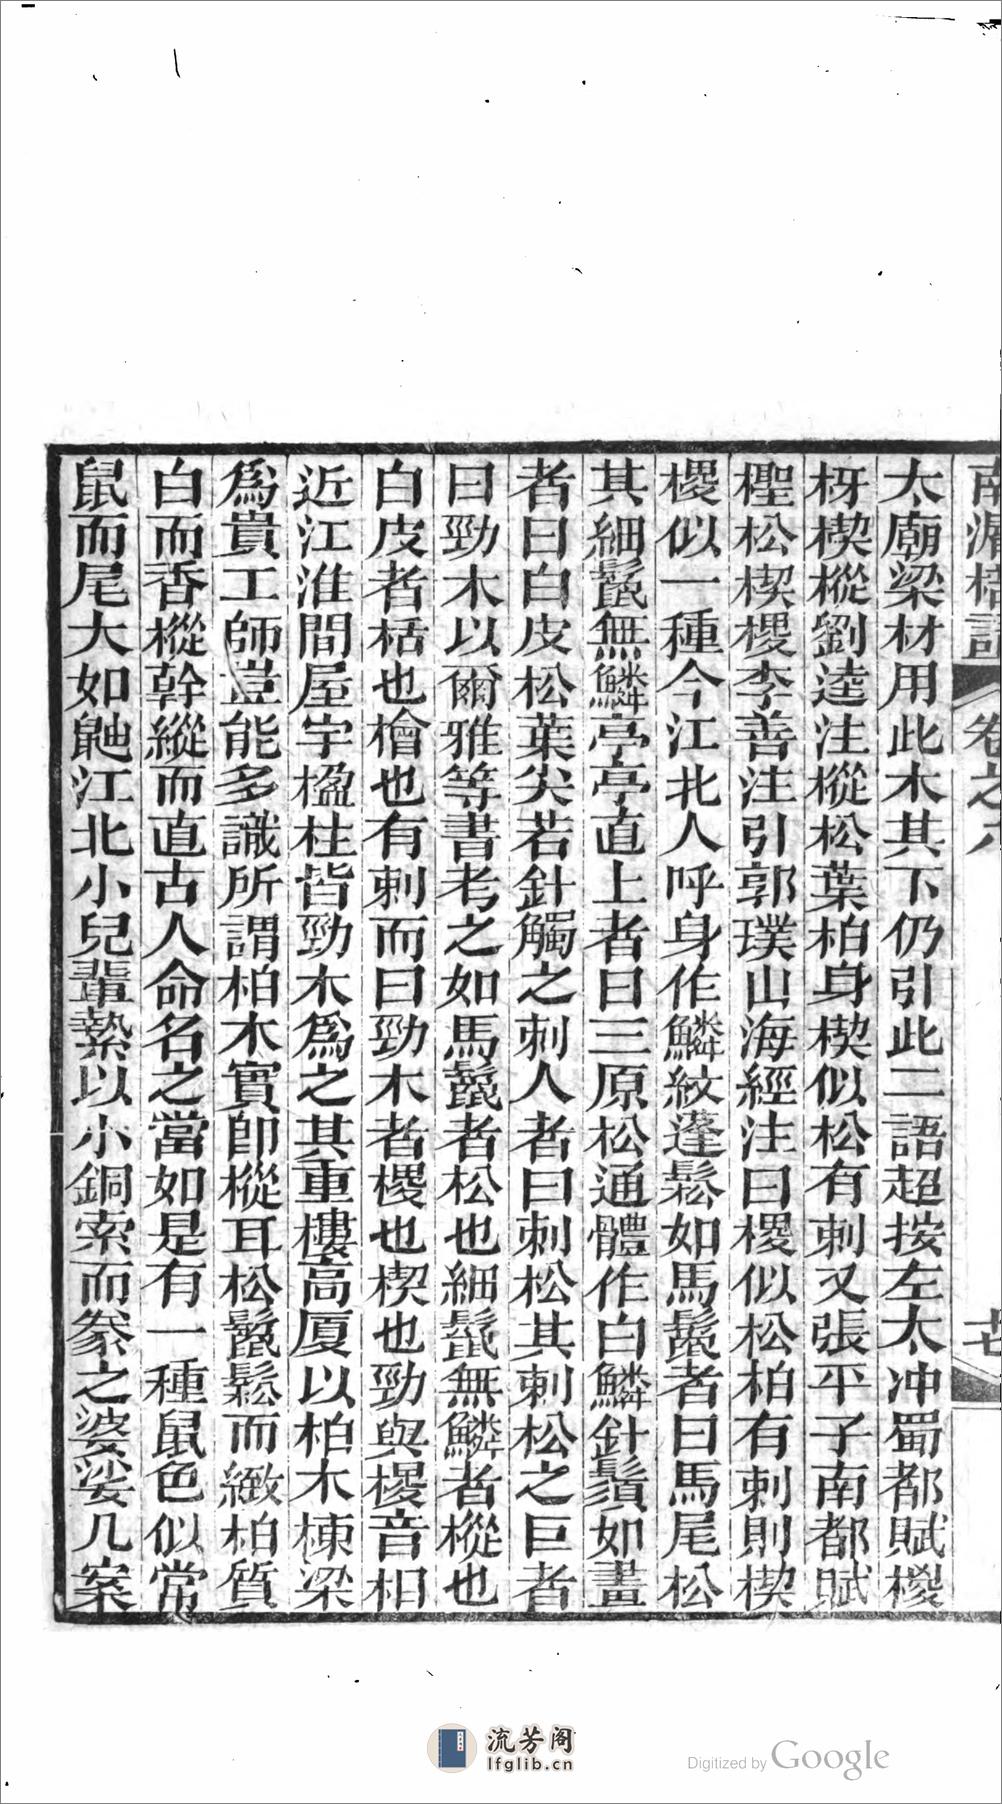 南漘楛語 卷之八 廿
太廟梁材用此木其下仍引此二語超按左太冲蜀都賦㮨
枒楔樅劉逵注樅松葉柏身楔似松有刺又張平子南都賦
檉松楔㮨李善注引郭璞山海經注曰㮨似松柏有刺則楔
㮨似一種今江北人呼身作鱗紋蓬鬆如馬鬛者曰馬尾松
其細鬛無鱗亭亭直上者曰三原松通體作白鱗針鬚如畫
者曰白皮松葉尖若針觸之刺人者曰刺松其刺松之巨者
曰勁木以爾雅等書考之如馬鬛者松也細鬛無鱗者樅也
白皮者栝也檜也有刺而曰勁木者㮨也楔也勁與㮨音相
近江淮間屋宇楹柱皆勁木爲之其重樓高厦以柏木棟梁
爲貴工師豈能多識所謂柏木實即樅耳松鬛鬆而緻柏質
白而香樅幹縱而直古人命名之當如是有一種鼠色似常
鼠而尾大如鼬江北小兒輩縶以小銅索而豢之婆娑几案
流芳阁
lfglib.cn
Digitized by Google